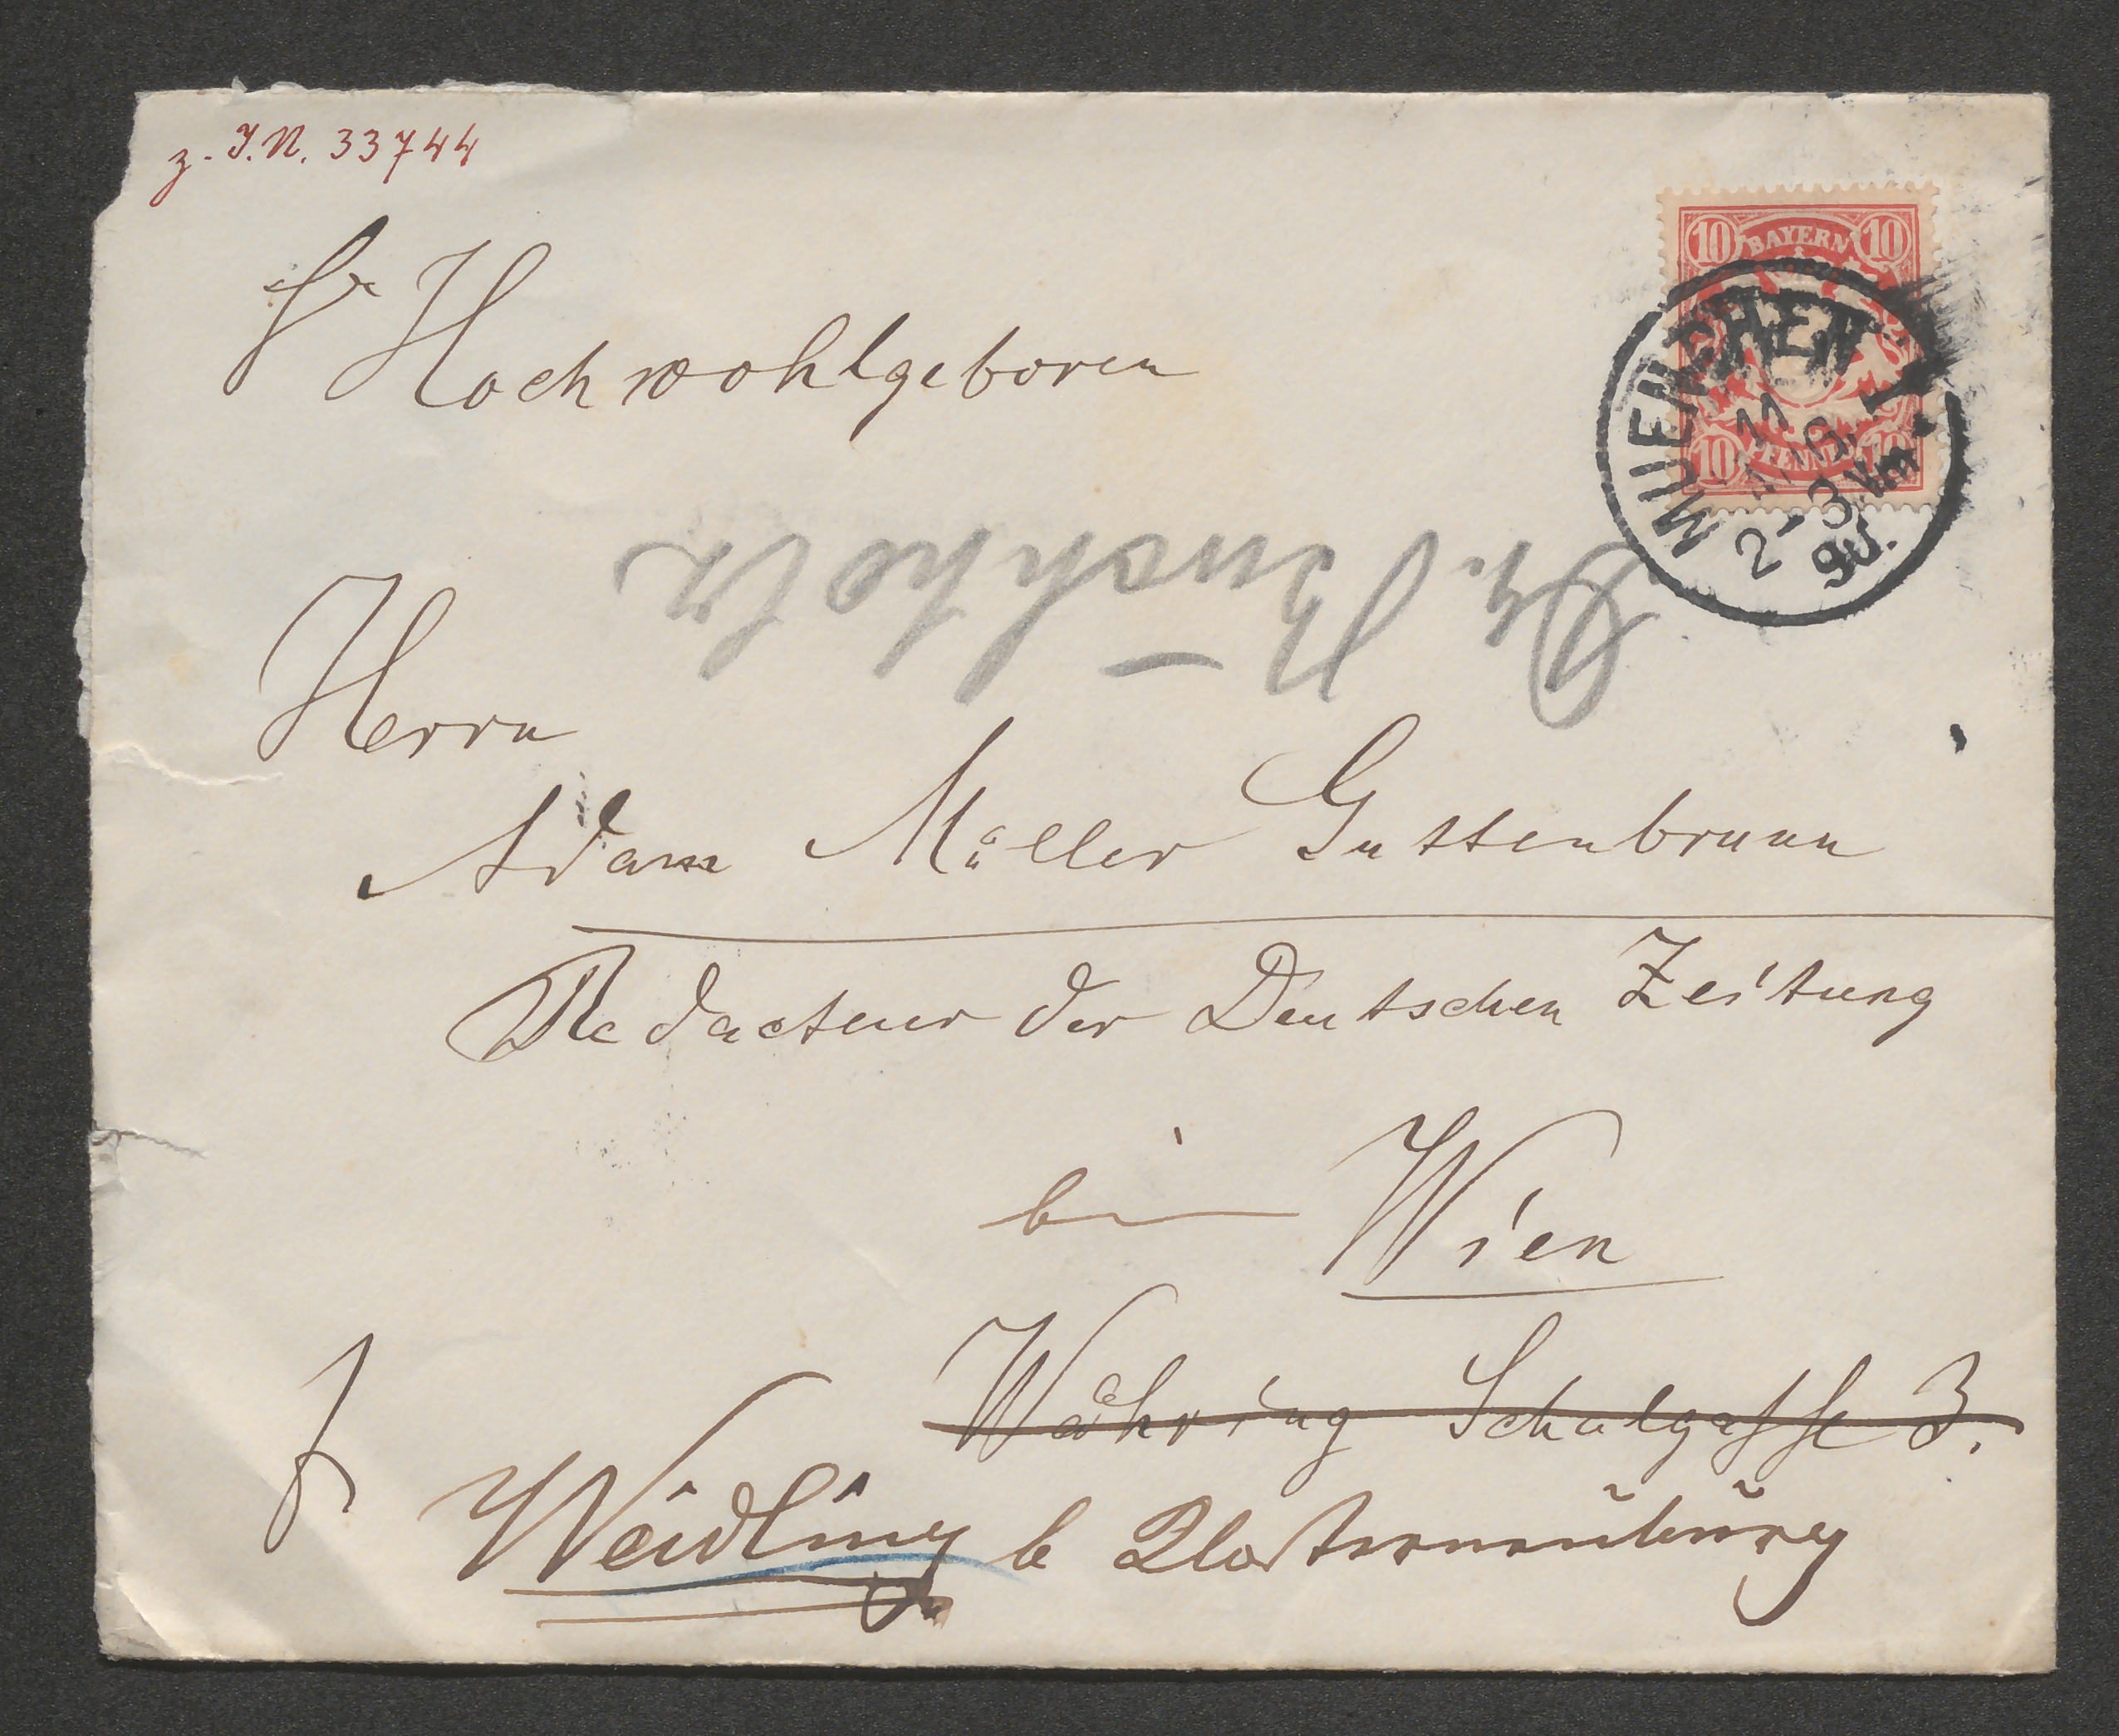 z. I.N. 33744
Sr Hochwohlgeboren
10 BAYERN 10
10 PFENNIG 10
MUENCHEN I.
11
2-3 Nm
90.
Herrn
Adam Müller Guttenbrunn
Redacteur der Deutschen Zeitung
bei Wien
Währing Schulgasse 3.
Weidling b Klosterneuburg